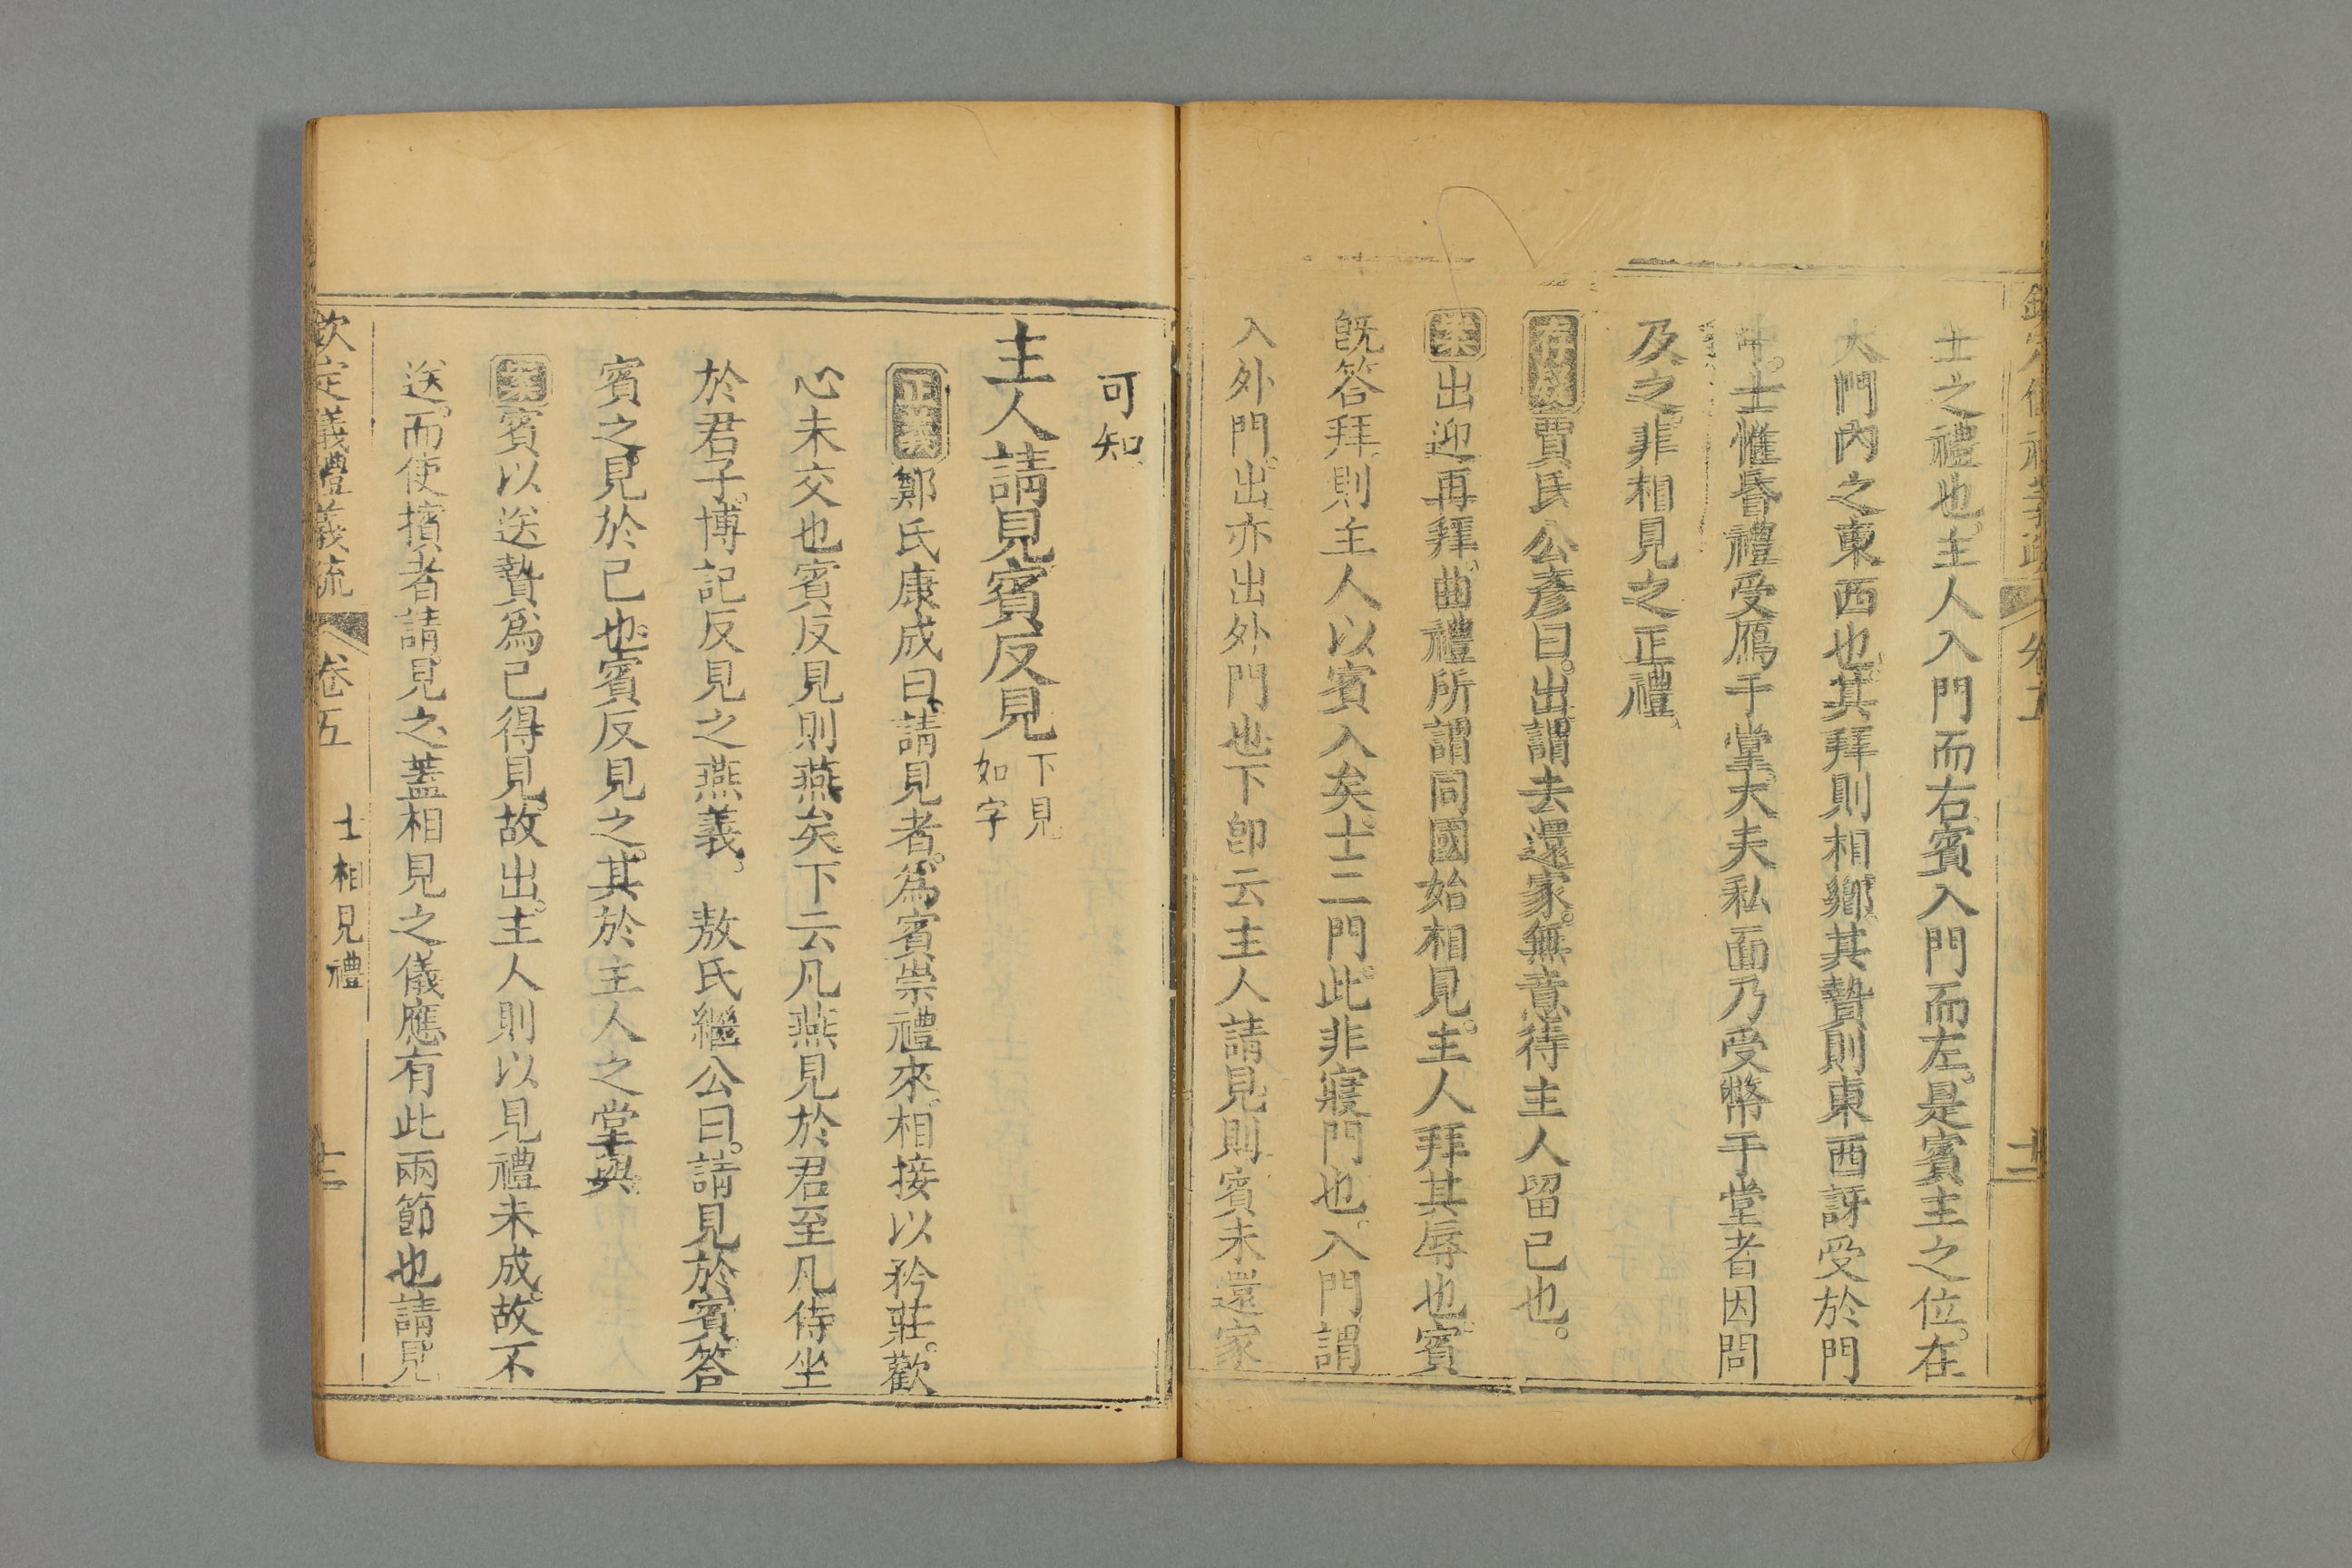 士之禮也主人入門而右賓入門而左是賓主之位在
大門內之東西也其拜則相鄉其贄則東西訝受於門
中士惟昏禮受鴈于堂大夫私面乃受幣于堂者因問
及之非相見之正禮
存疑賈氏公彥曰出謂去還家無意待主人留已也
案出迎再拜曲禮所謂同國始相見主人拜其辱也賓
旣答拜則主人以賓入矣士二門此非寢門也入門謂
入外門出亦出外門也下卽云主人請見則賓未還家
可知
主人請見賓反見下見
如字
正義鄭氏康成曰請見者為賓崇禮來相接以矜莊歡
心未交也賓反見則燕矣下云凡燕見於君至凡侍坐
於君子博記反見之燕義 敖氏繼公曰請見於賓答
賓之見於已也賓反見之其於主人之堂與
案賓以送贄為已得見故出主人則以見禮未成故不
送而使擯者請見之蓋相見之儀應有此兩節也請見
欽定儀禮義疏 卷五 士相見禮 十三